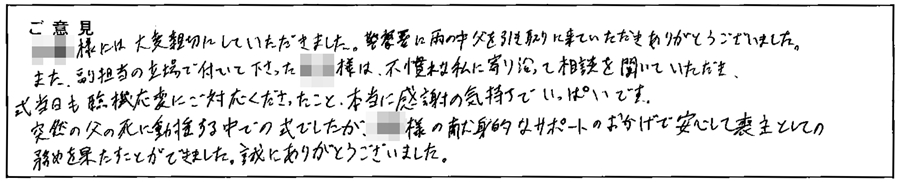 ご意見
様には大変親切にしていただきました。警察署に雨の中父を引き取りに来ていただきありがとうございました。
また、副担当の立場で付いて下さった様は、不慣れな私に寄り沿って相談を聞いていただき、
式当日も臨機応変にご対応くださったこと、本当に感謝の気持ちでいっぱいです。
突然の父の死に動揺する中での式でしたが様の献身的なサポートのおかげで安心して喪主としての
務めを果たすことができました。誠にありがとうございました。